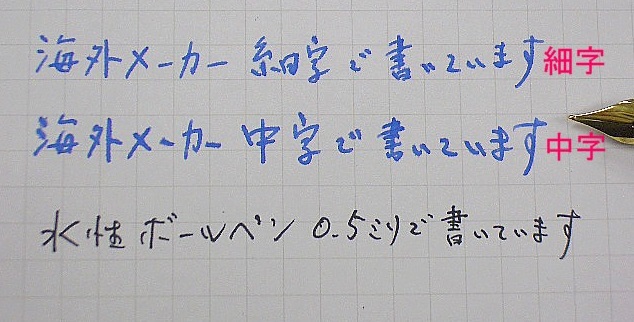 海外メーカー 細字で書いています細字
海外メーカー 中字で書いています中字
水性ボールペン 0.5ミリで書いています